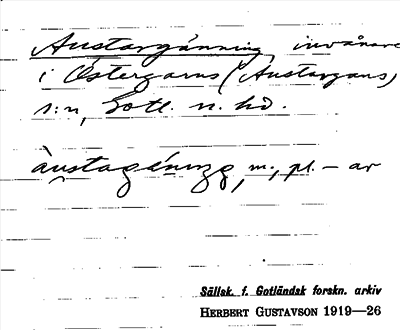 Austargänning, invånare
i Östergarns (Austargans)
s:n, Gotl. n. hd.
àustagéningg, m., pl. – ar
Sällsk. f. Gotländsk forskn. arkiv
HERBERT GUSTAVSON 1919—26